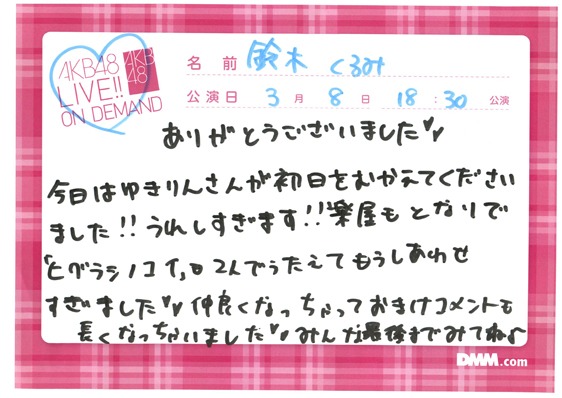 AKB48
LIVE!!
ON DEMAND
AKB
48
名 前 鈴木 くるみ
公演日 3 月 8 日 18 : 30 公演
ありがとうございました♡♡
今日はゆきりんさんが初日をむかえてください
ました!! うれしすぎます!! 楽屋もとなりで
「ヒグラシノコイ」も2人でうたえてもうしあわせ
すぎました♡♡ 仲良くなっちゃっておまけコメントも
長くなっちゃいました♡♡ みんな最後までみてね♪
DMM.com